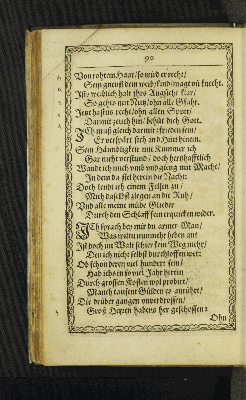 90
Von rohtem Haar/so würd er recht/
Sein gmuß dem weib/kind/magt vñ knecht.
Ists weiblich halt ihrs Angsicht klar/
So gehts
Jetzt hastus recht/ohn allen Spott/
Darmit zeuch hin/behüt dich Gott.
Ich muß gleich darmit z'frieden sein/
Er verspärt sich und Hütt hinein.
Sein Hämbligkeit mit Kummer ich
Gar nicht verstund/ doch herzhafftlich
Wandt ich mich umb und gieng mit Macht/
In dem da fiel herein die Nacht:
Doch lendt ich einem Felsen zu/
Mich daselbst z'legen an die Ruh/
Vnd alle meine müde Glieder
Durch den Schlaff sein erquicken wider.
Ich sprach bey mir du armer Man/
Was wiltu nunmehr heben an?
Ist doch im Walt schier kein Weg mehr/
Den ich nicht selbst durchloffen wer:
Ob schon deren viel hundert sein/
Hab ichs in so viel Jahr herein
Durch grossen Kosten wol probiert/
Manch tausent Gülden es anrührt/
Die drüber gangen unverdrossen/
Groß Herren habens her geschossen:
Ohn